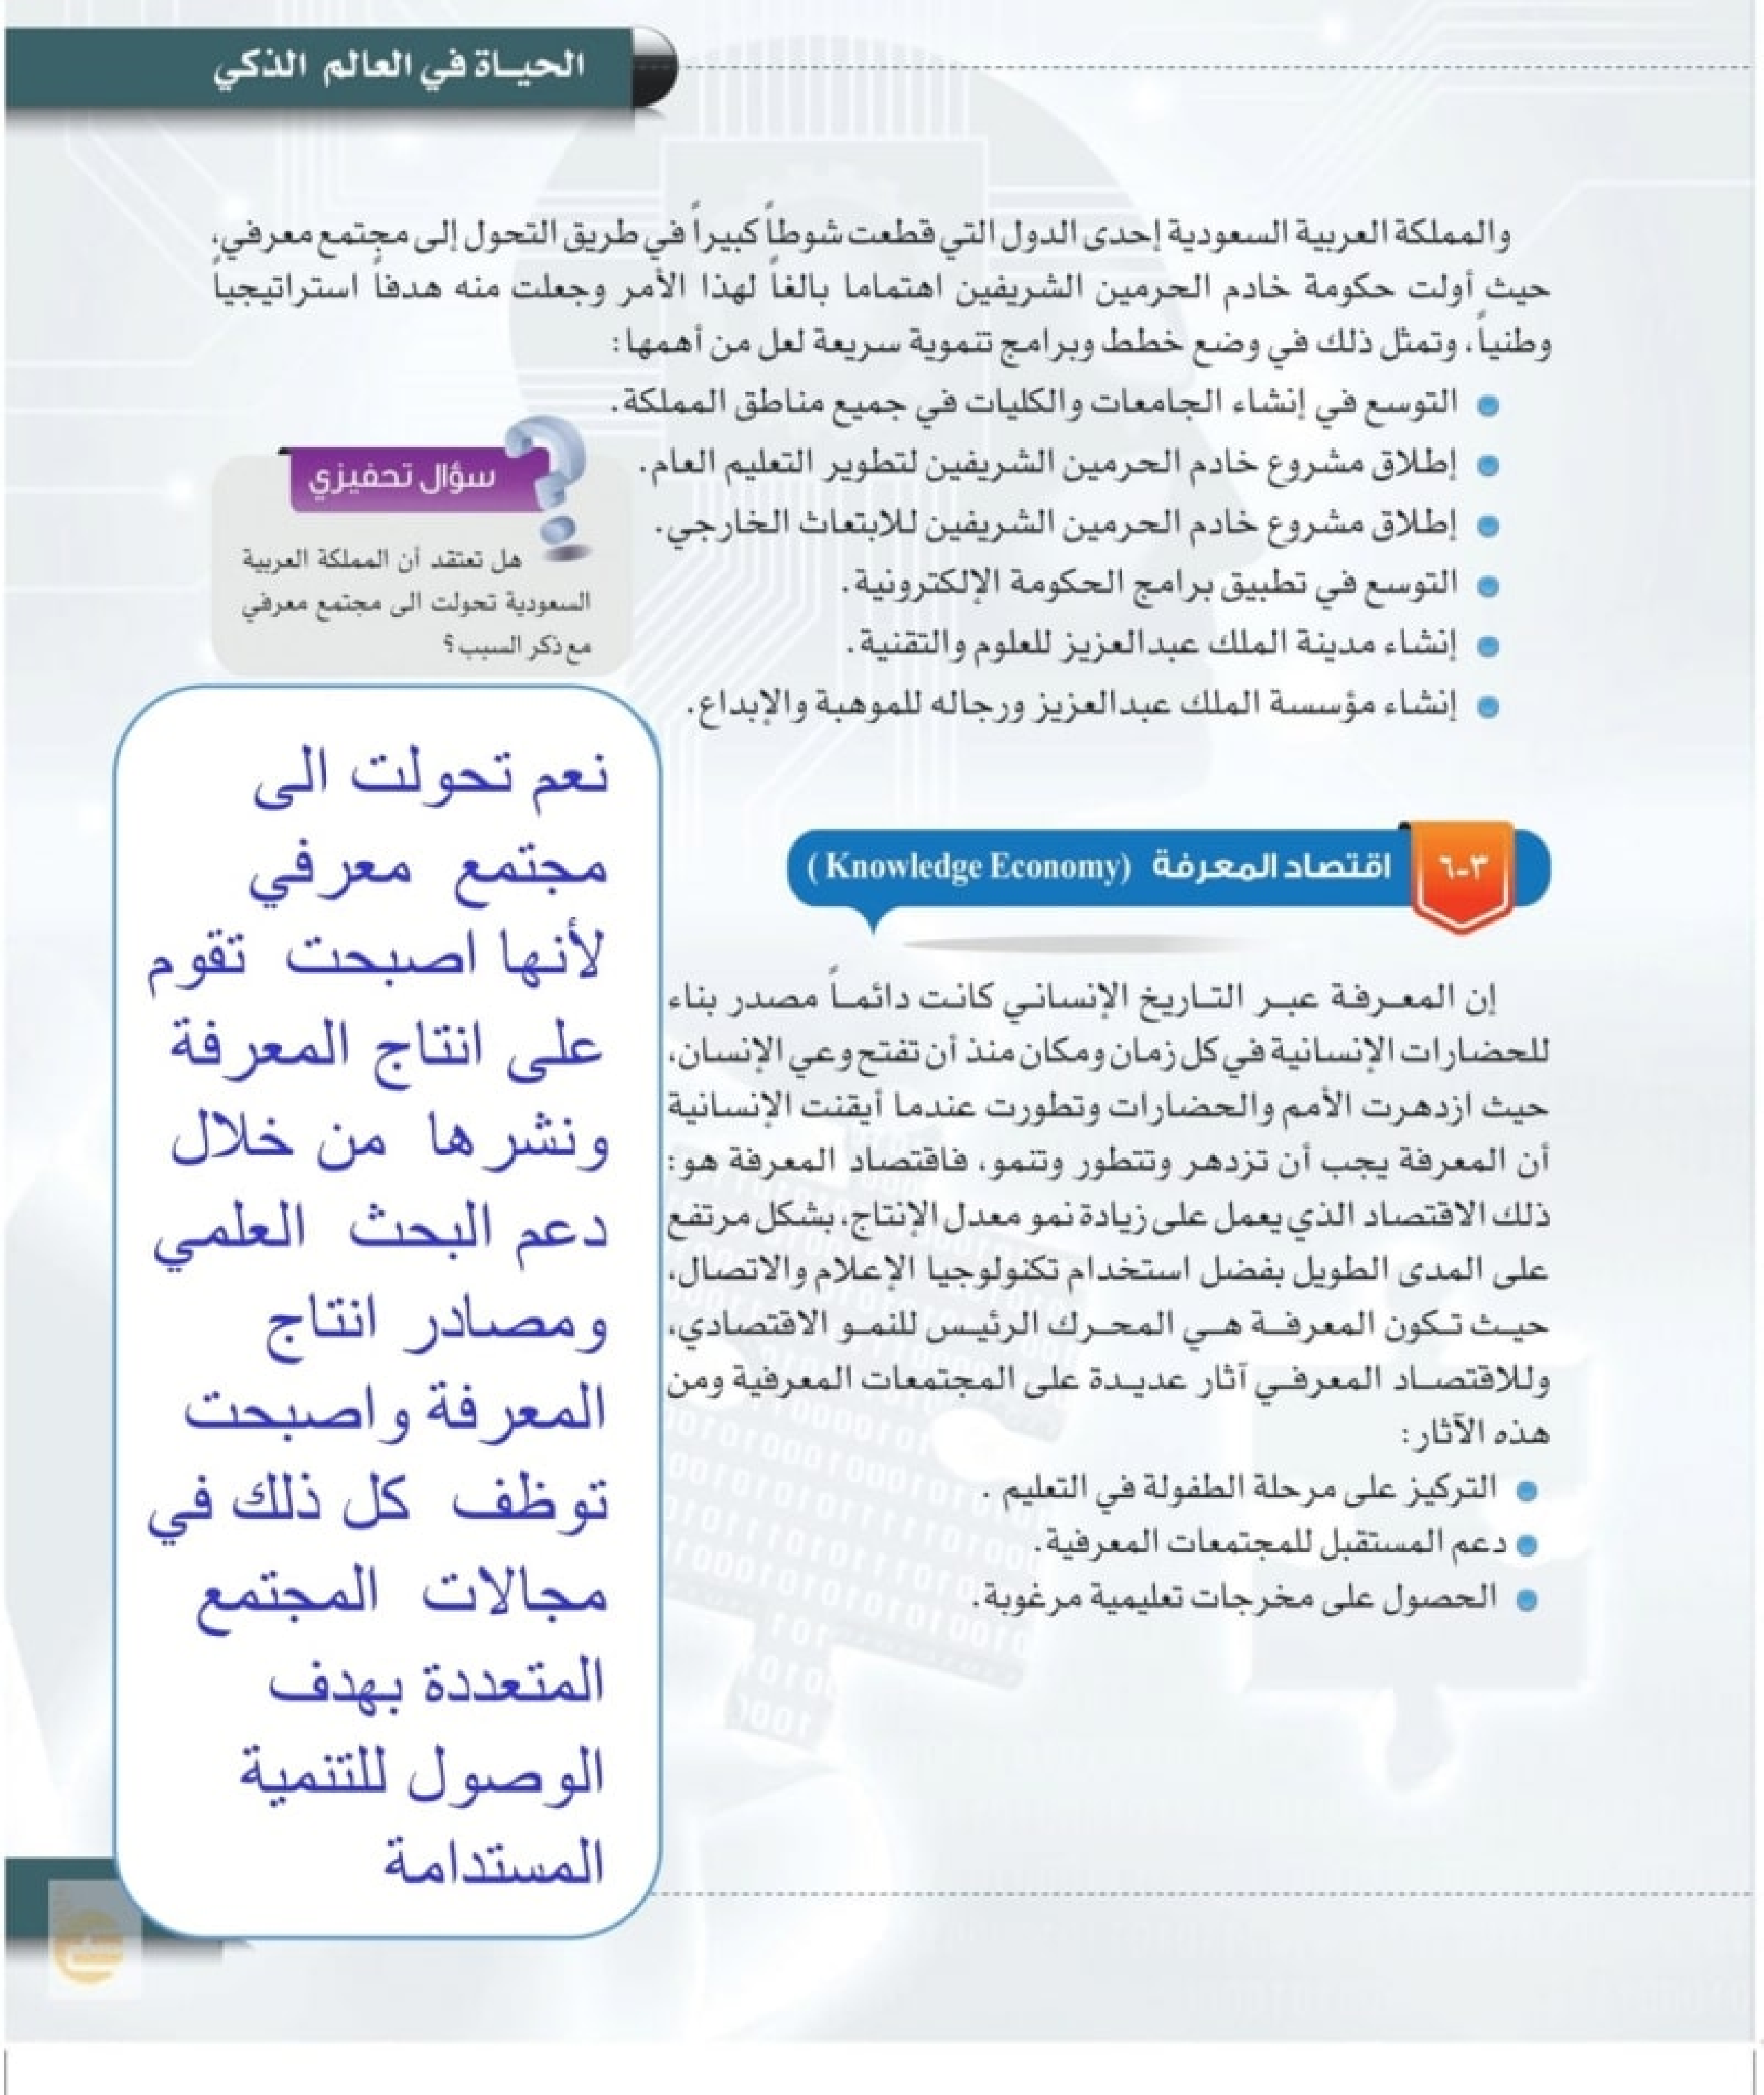 الحياة في العالم الذكي
والمملكة العربية السعودية إحدى الدول التي قطعت شوطاً كبيراً في طريق التحول إلى مجتمع معرفي،
حيث أولت حكومة خادم الحرمين الشريفين اهتماما بالغاً لهذا الأمر وجعلت منه هدفاً استراتيجياً
وطنياً، وتمثل ذلك في وضع خطط وبرامج تنموية سريعة لعل من أهمها:
التوسع في إنشاء الجامعات والكليات في جميع مناطق المملكة.
إطلاق مشروع خادم الحرمين الشريفين لتطوير التعليم العام.
إطلاق مشروع خادم الحرمين الشريفين للابتعاث الخارجي.
التوسع في تطبيق برامج الحكومة الإلكترونية.
إنشاء مدينة الملك عبدالعزيز للعلوم والتقنية.
إنشاء مؤسسة الملك عبدالعزيز ورجاله للموهبة والإبداع.
سؤال تحفيزي
هل تعتقد أن المملكة العربية
السعودية تحولت الى مجتمع معرفي
مع ذكر السبب؟
نعم تحولت الى
مجتمع معرفي
لأنها اصبحت تقوم
على انتاج المعرفة
ونشرها من خلال
دعم البحث العلمي
ومصادر انتاج
المعرفة واصبحت
توظف كل ذلك في
مجالات المجتمع
المتعددة بهدف
الوصول للتنمية
المستدامة
٣-٦ اقتصاد المعرفة (Knowledge Economy)
إن المعرفة عبر التاريخ الإنساني كانت دائماً مصدر بناء
للحضارات الإنسانية في كل زمان ومكان منذ أن تفتح وعي الإنسان،
حيث ازدهرت الأمم والحضارات وتطورت عندما أيقنت الإنسانية
أن المعرفة يجب أن تزدهر وتتطور وتنمو، فاقتصاد المعرفة هو:
ذلك الاقتصاد الذي يعمل على زيادة نمو معدل الإنتاج، بشكل مرتفع
على المدى الطويل بفضل استخدام تكنولوجيا الإعلام والاتصال،
حيث تكون المعرفة هي المحرك الرئيس للنمو الاقتصادي،
وللاقتصاد المعرفي آثار عديدة على المجتمعات المعرفية ومن
هذه الآثار:
التركيز على مرحلة الطفولة في التعليم .
دعم المستقبل للمجتمعات المعرفية.
الحصول على مخرجات تعليمية مرغوبة.